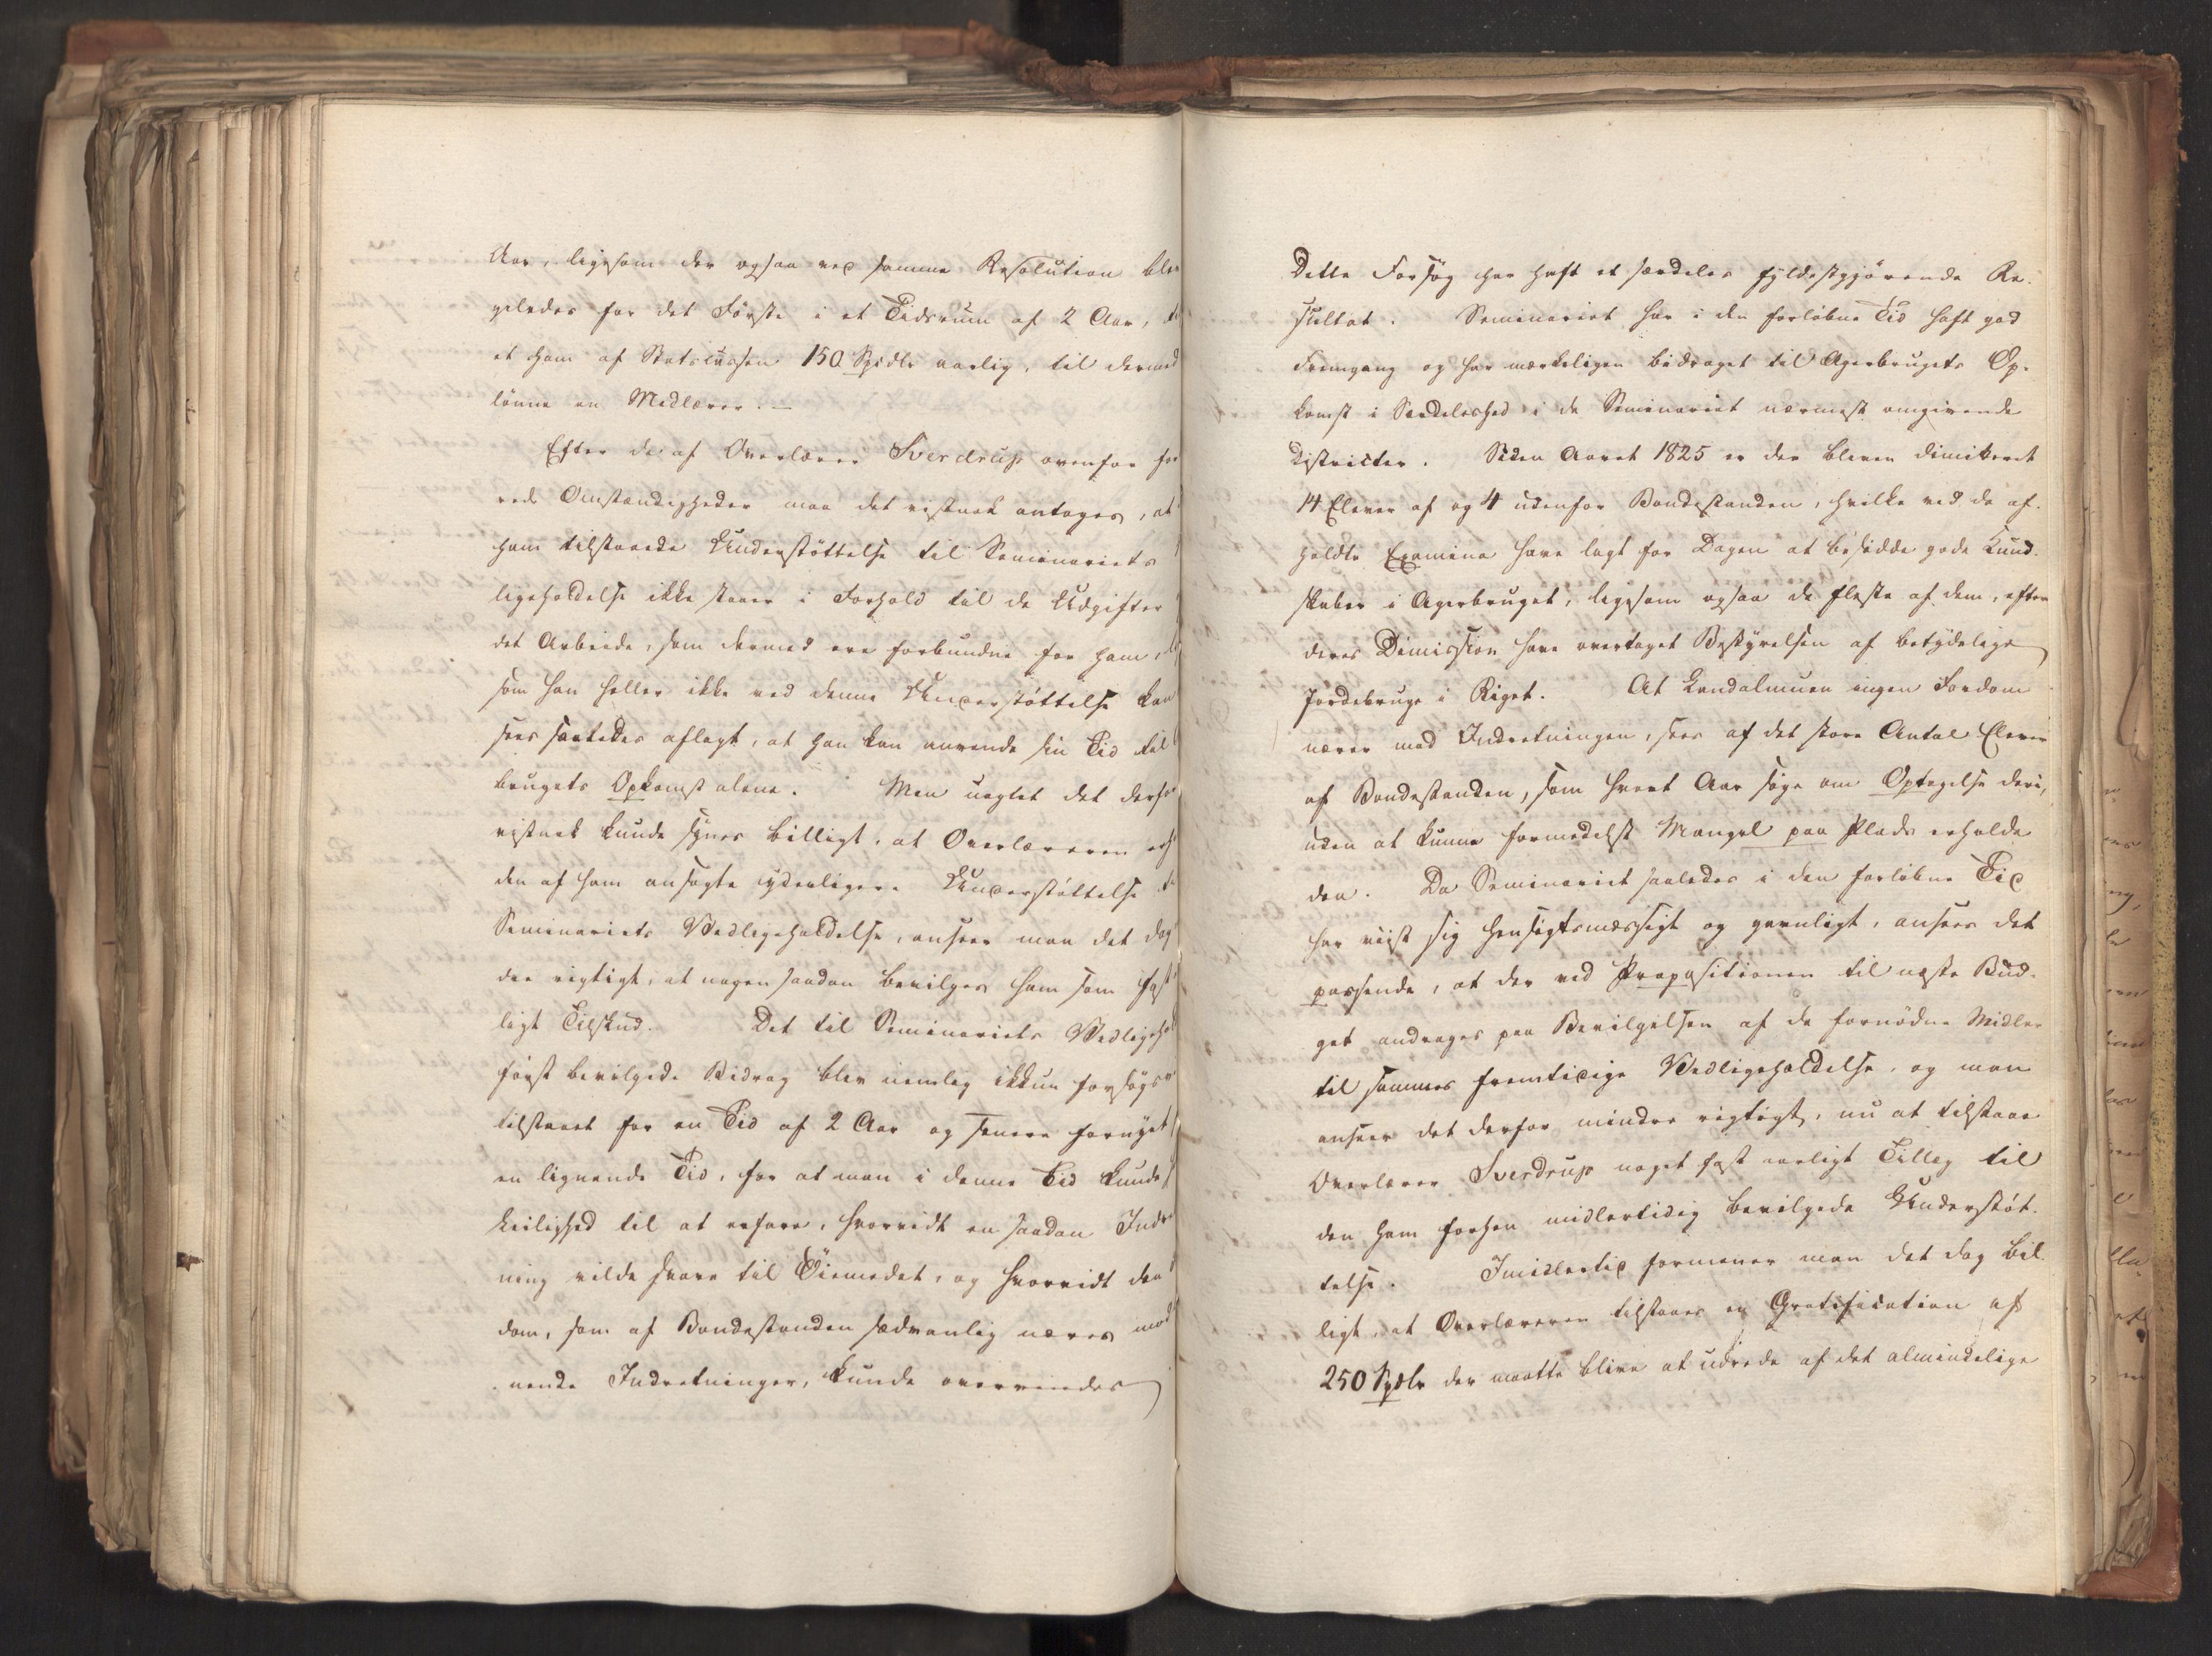 Aar, ligesom der ogsaa ved samme Resolution blev
geledes for det Første i et Tidsrum af 2 Aar,
et ham af Statscassen 150 Spdlr aarlig, til dermed
lønne en Medlærer. —
Efter de af Overlærer Sverdrup ovenfor
rede Omstændigheder maa det vistnok antages, at
ham tilstaaede Understøttelse til Seminariets
ligeholdelse ikke staaer i Forhold til de Udgifter
det Arbeide, som dermed ere forbundne for ham,
som han heller ikke ved denne Understøttelse kan
sees saaledes aflagt, at han kan anvende sin Tid til
brugets Opkomst alene. Men uagtet det derfor
vistnok kunde synes billigt, at Overlæreren
den af ham ansøgte yderligere Understøttelse
Seminariets Vedligeholdelse, anseer man det dog
der rigtigt, at nogen saadan bevilges ham som fast
ligt Tilskud. Det til Seminariets Vedligehol
først bevilgede Bidrag blev nemlig ikkun forsøgsv
tilstaaet for en Tid af 2 Aar og senere fornyet
en lignende Tid, for at man i denne Tid kunde
Leilighed til at erfare, hvorvidt en saadan Indr
ning vilde svare til Øiemedet, og hvorvidt den
dom, som af Bondestanden sædvanlig næres mod
nende Indretninger, kunde overvindes
Dette Forsøg har havt et særdeles fyldestgjørende Re-
sultat. Seminariet har i den forløbne Tid haft god
Fremgang og har mærkeligen bidraget til Agerbrugets Op-
komst i Særdeleshed i de Seminariet nærmest omgivende
Districter. Siden Aaret 1825 er der bleven dimitteret
14 Elever af og 4 udenfor Bondestanden, hvilke ved de af-
holdte Examina have lagt for Dagen at besidde gode Kund-
skaber i Agerbruget, ligesom ogsaa de fleste af dem, efter
deres Dimission have overtaget Bestyrelsen af betydelige
Jordebruge i Riget. At Landalmuen ingen Fordom
nærer mod Indretningen, sees af det store Antal Elever
af Bondestanden, som hvert Aar søge om Optagelse deri,
uden at kunne formedelst Mangel paa Plads erholde
den. Da Seminariet saaledes i den forløbne Tid
har viist sig hensigtsmæssigt og gavnligt, ansees det
passende, at der ved Propositionen til næste Bud-
get andrages paa Bevilgelsen af de fornødne Midler
til sammes fremtidige Vedligeholdelse, og man
anseer det derfor mindre rigtigt, nu at tilstaae
Overlærer Sverdrup noget fast aarligt Tillæg til
den ham forhen midlertidig bevilgede Understøt-
telse. Imidlertid formener man det dog bil-
ligt, at Overlæreren tilstaaes en Gratification af
250 Spdlr der maatte blive at udrede af det almindelige